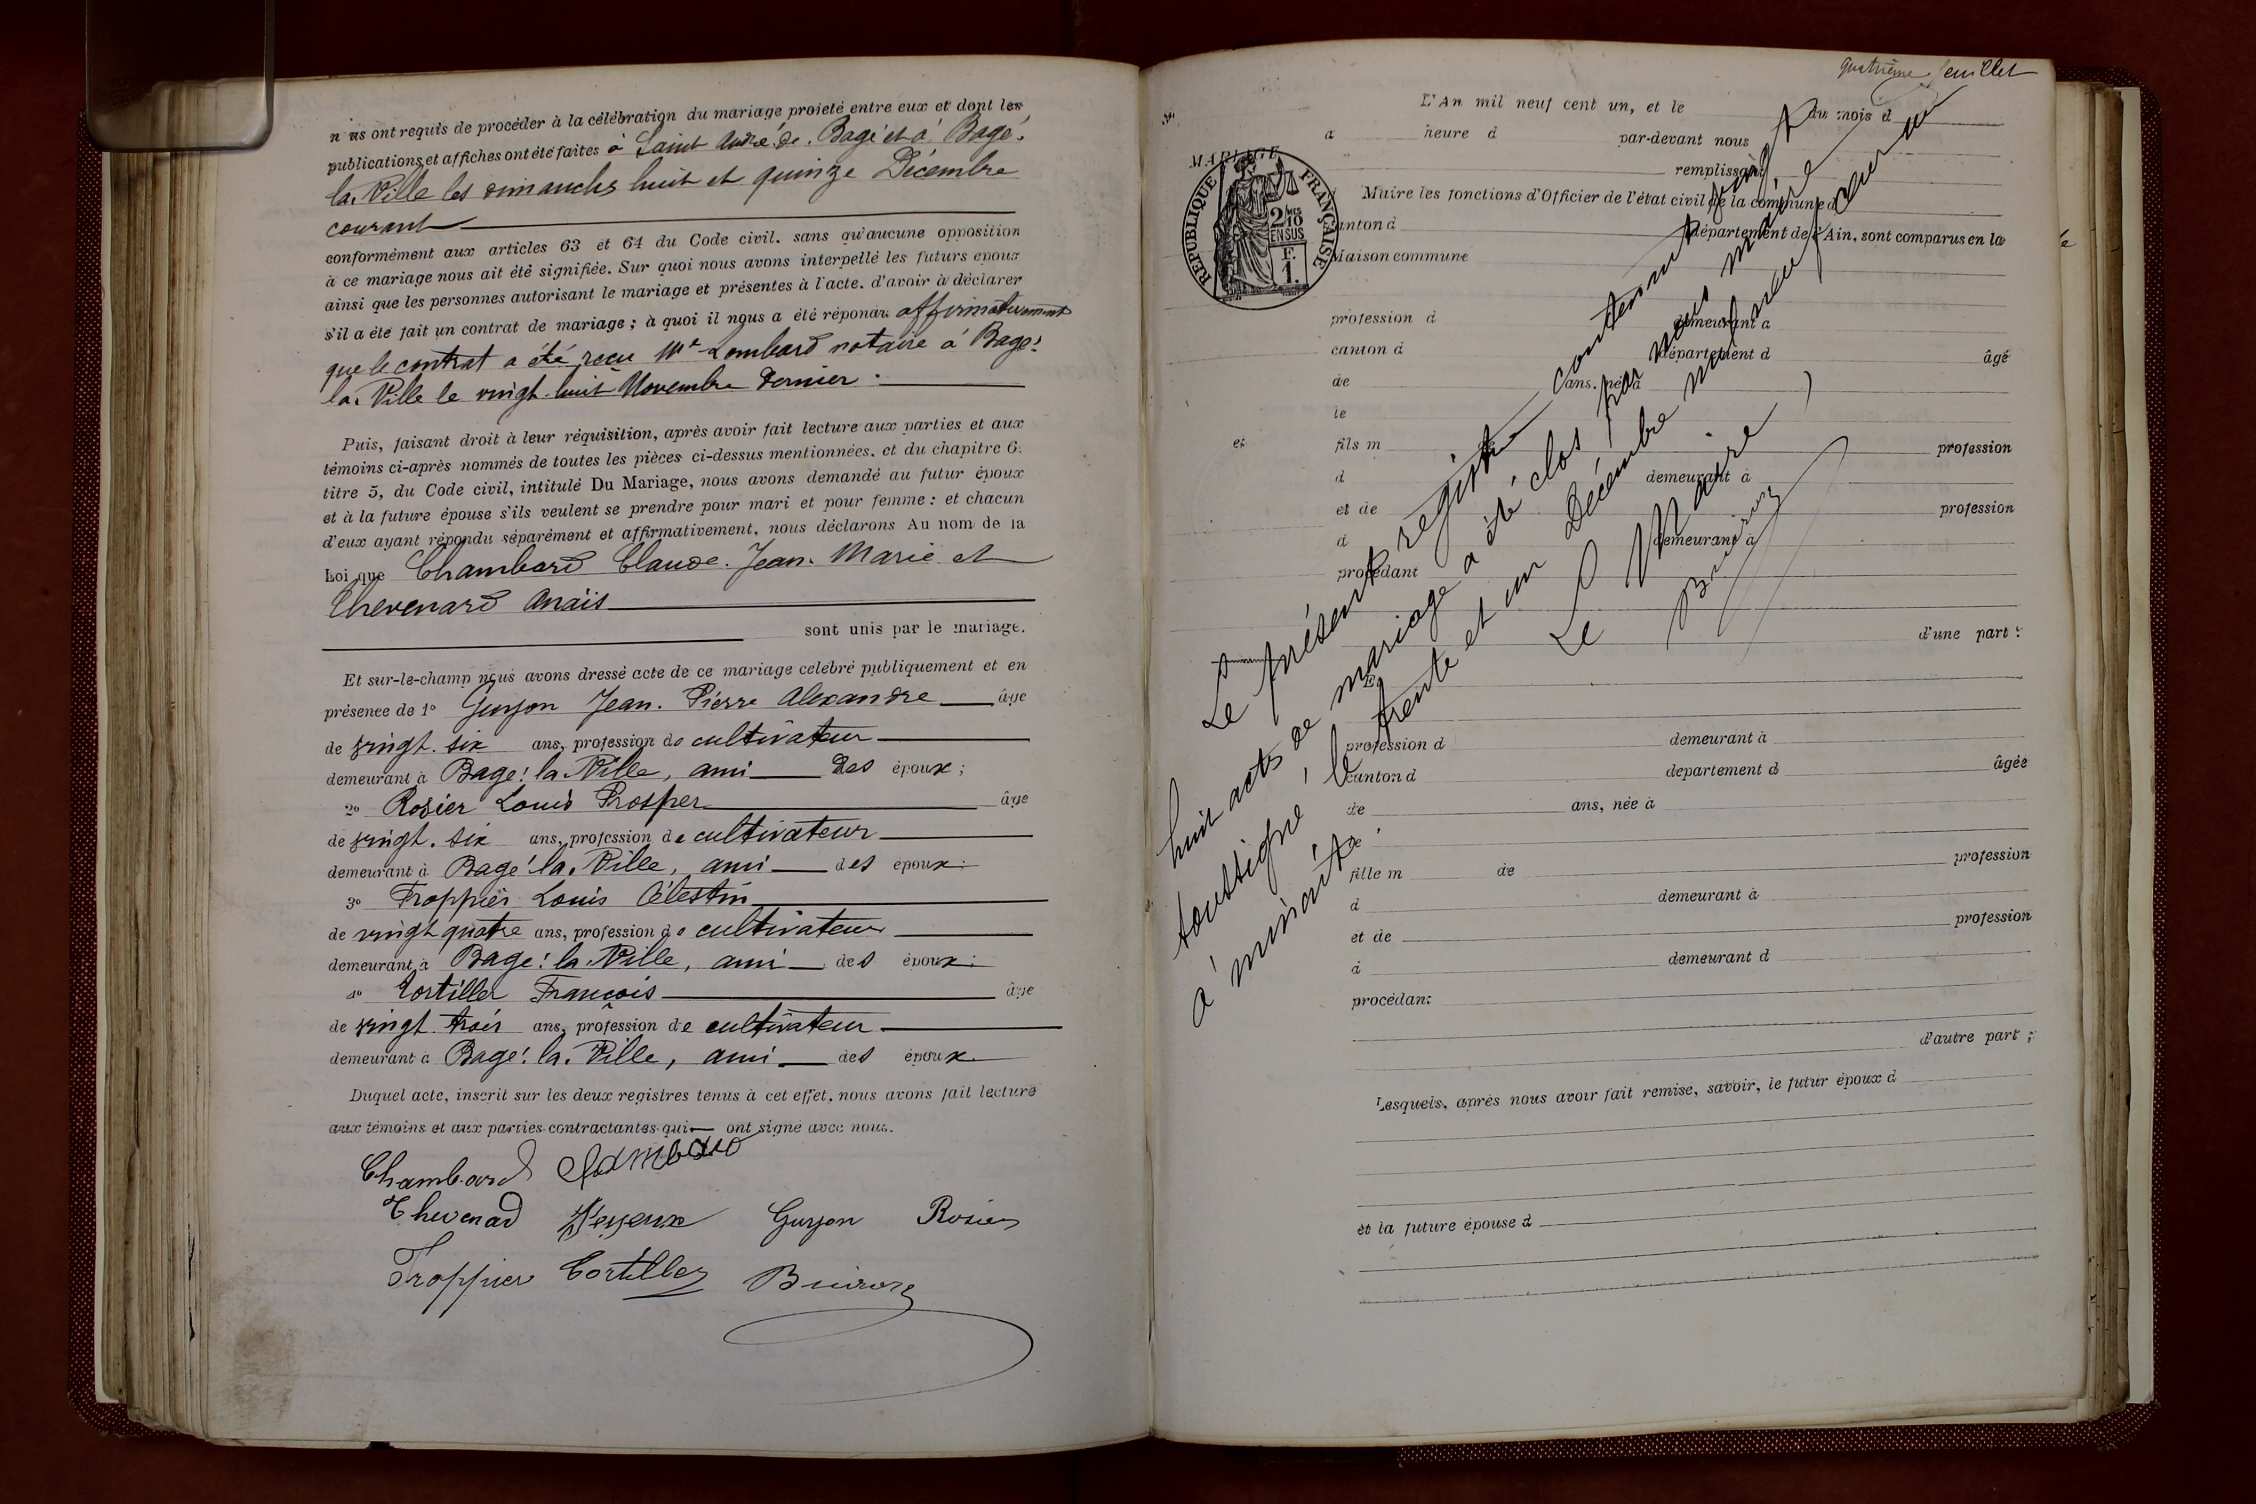 nous ont requis de procéder à la célébration du mariage projeté entre eux et dont les
publications et affiches ont été faites à Saint André-de-Bagé et à Bagé-
la-Ville les dimanches huit et quinze Décembre
courant
conformément aux articles 63 et 64 du Code civil. sans qu'aucune opposition
à ce mariage nous ait été signifiée. Sur quoi nous avons interpellé les futurs epoux
ainsi que les personnes autorisant le mariage et présentes à l'acte. d'avoir à déclarer
s'il a été fait un contrat de mariage; à quoi il nous a été répondu affirmativement
que le contrat a été reçu Me Lombard notaire à Bagé-
la-Ville le vingt-huit Novembre dernier.
Puis, faisant droit à leur réquisition, après avoir fait lecture aux parties et aux
témoins ci-après nommés de toutes les pièces ci-dessus mentionnées. et du chapitre 6.
titre 5, du Code civil, intitulé Du Mariage, nous avons demandé au futur époux
et à la future épouse s'ils veulent se prendre pour mari et pour femme: et chacun
d'eux ayant répondu séparément et affirmativement, nous déclarons Au nom de la
Loi que Chambard Claude-Jean-Marie et
Thevenard Anaïs
sont unis par le mariage.
Et sur-le-champ nous avons dressé acte de ce mariage celebré publiquement et en
présence de 1° Guyon Jean-Pierre Alexandre âge
de vingt-six ans, profession de cultivateur
demeurant à Bagé-la-Ville, ami des époux;
2° Rosier Louis Prosper âge
de vingt-six ans, profession de cultivateur
demeurant à Bagé-la-Ville, ami des époux:
3° Froppier Louis Célestin
de vingt quatre ans, profession de cultivateur
demeurant à Bagé-la-Ville, ami des époux:
4° Tortiller François âge
de vingt-trois ans, profession de cultivateur
demeurant à Bagé-la-Ville, ami des époux.
Duquel acte, inscrit sur les deux registres tenus à cet effet, nous avons fait lecture
aux témoins et aux parties contractantes qui ont signé avec nous.
Chambard Chambard
Thevenard Guyon Rosier
Froppier Tortiller
quatrième feuillet
N°
L'An mil neuf cent un, et le du mois d
a heure d par-devant nous
MARIAGE
remplissant
RÉPUBLIQUE FRANÇAISE
2/10 EN SUS
F. 1.
Maire les fonctions d'Officier de l'état civil de la commune d
canton d Département de l'Ain, sont comparus en la
Maison commune
profession d demeurant a
canton d département d âgé
de ans. né à
le
et
fils m profession
d demeurant à
et de profession
d demeurant à
procédant
d'une part:
Et
profession d demeurant à
canton d departement d âgée
de ans, née à
le
fille m de profession
d demeurant à
et de profession
à demeurant d
procédant
d'autre part;
Lesquels, après nous avoir fait remise, savoir, le futur époux d
et la future épouse d
Le présent registre contenant vingt
huit actes de mariage a été clos par nous maire
soussigné, le trente et un Décembre mil neuf cent un
à minuit.
Le Maire